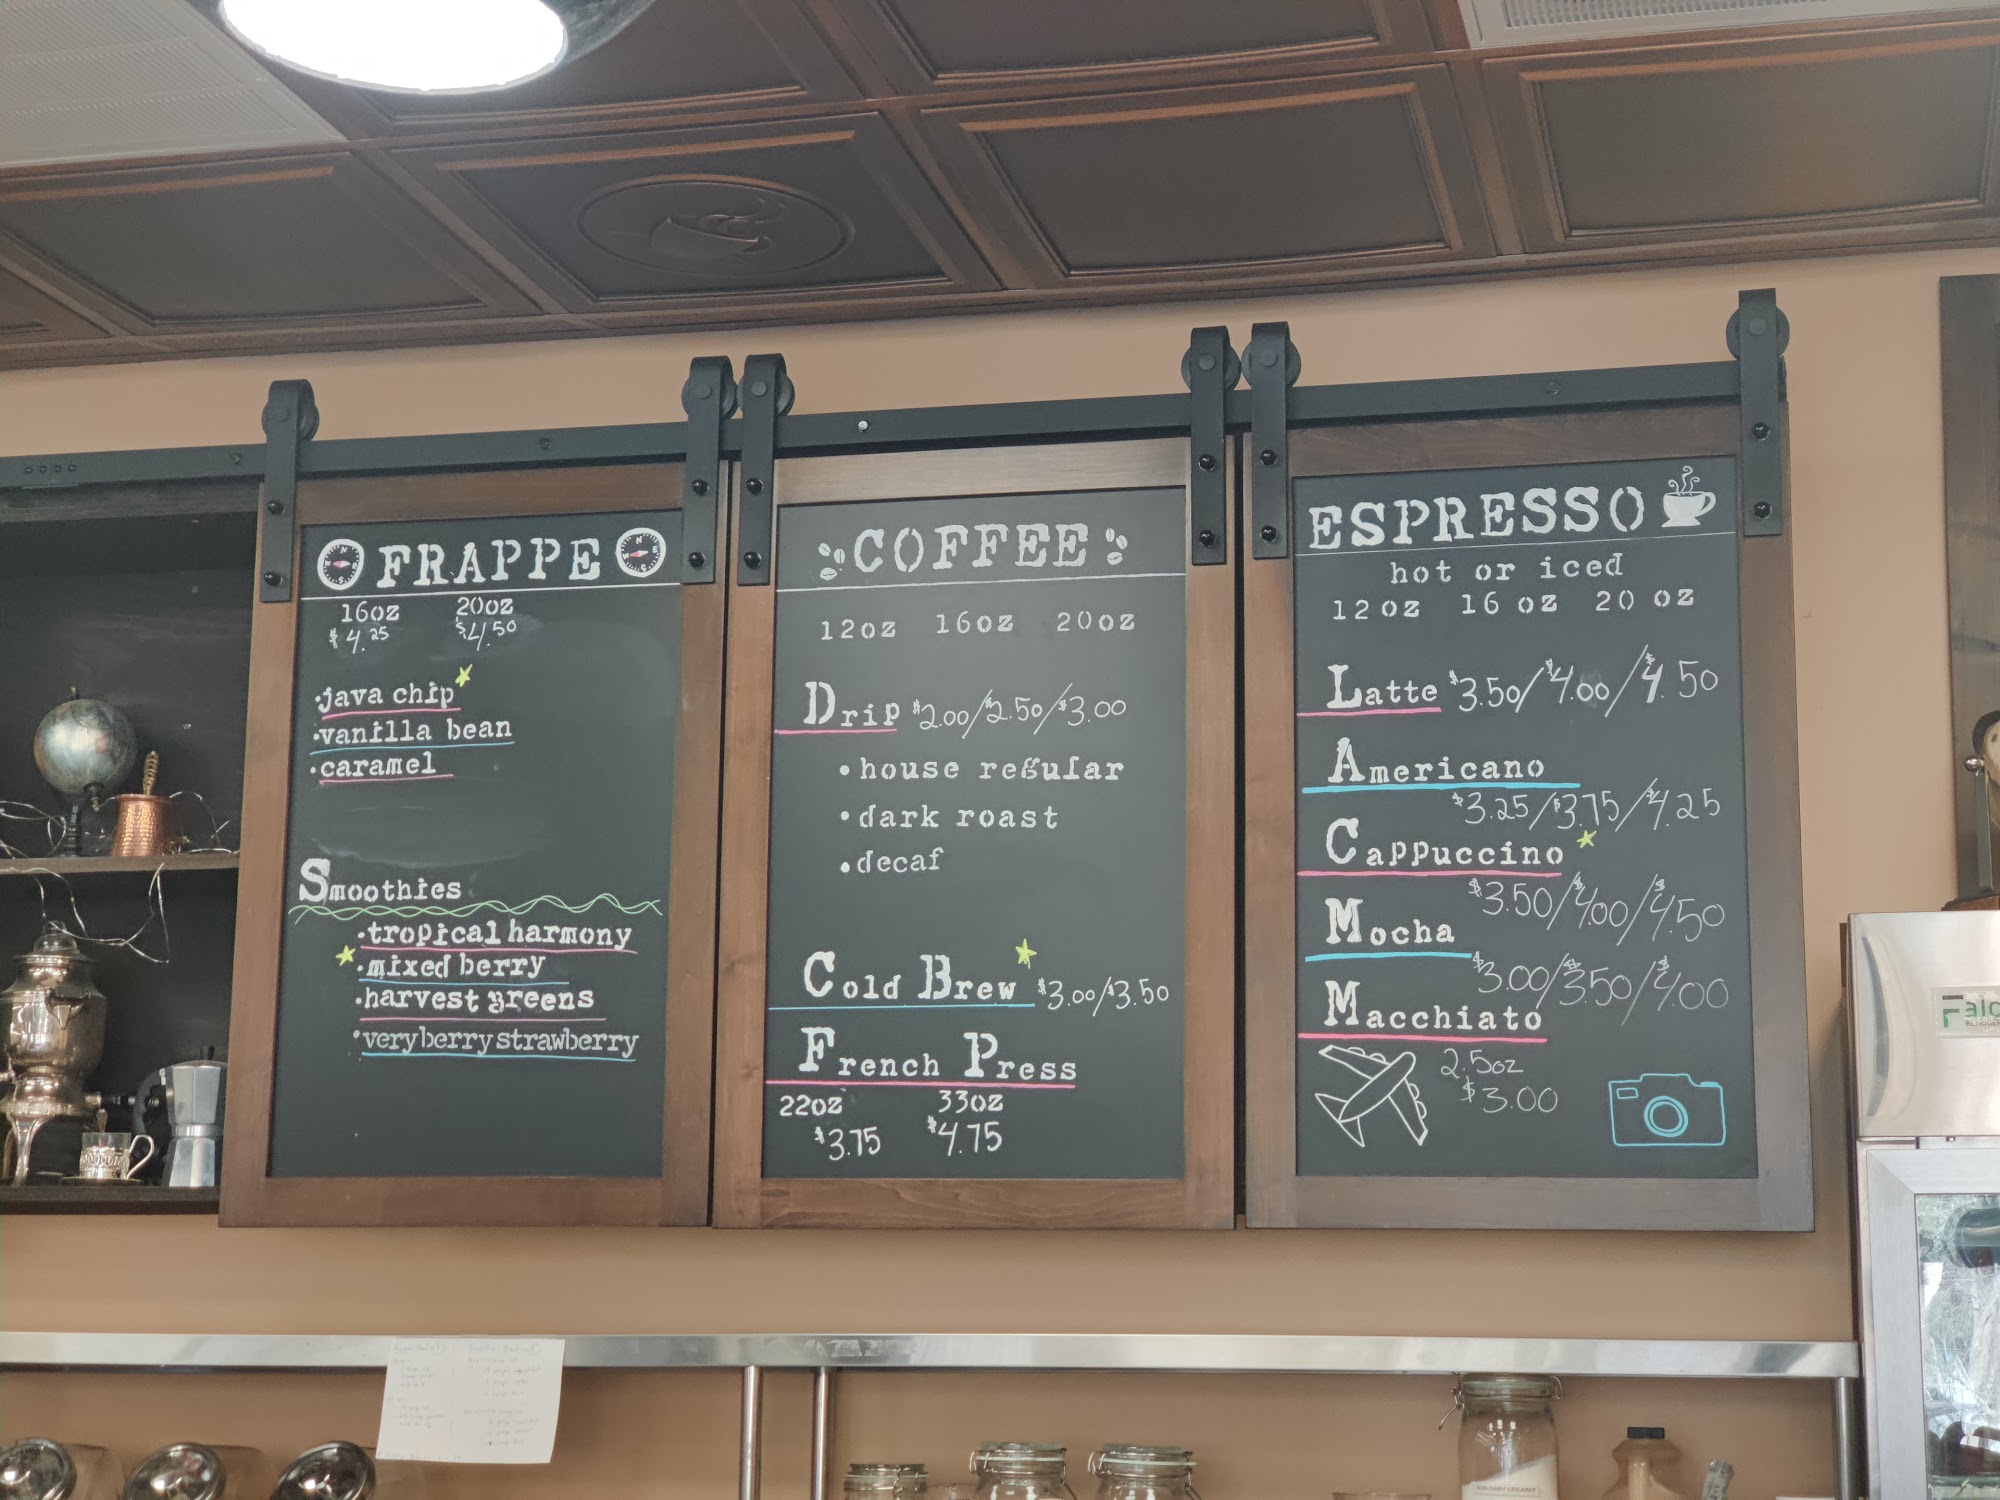 FRAPPE
16oz 20oz
$4.25 $4.50
·java chip
·vanilla bean
·caramel
Smoothies
·tropical harmony
·mixed berry
·harvest greens
·very berry strawberry
COFFEE
12oz 16oz 20oz
Drip $2.00/$2.50/$3.00
•house regular
•dark roast
•decaf
Cold Brew $3.00/$3.50
French Press
22oz 33oz
$3.75 $4.75
ESPRESSO
hot or iced
12 oz 16 oz 20 oz
Latte $3.50/$4.00/$4.50
Americano
$3.25/$3.75/$4.25
Cappuccino
$3.50/$4.00/$4.50
Mocha
$3.00/$3.50/$4.00
Macchiato
2.5oz
$3.00
NON DAIRY CREAMER